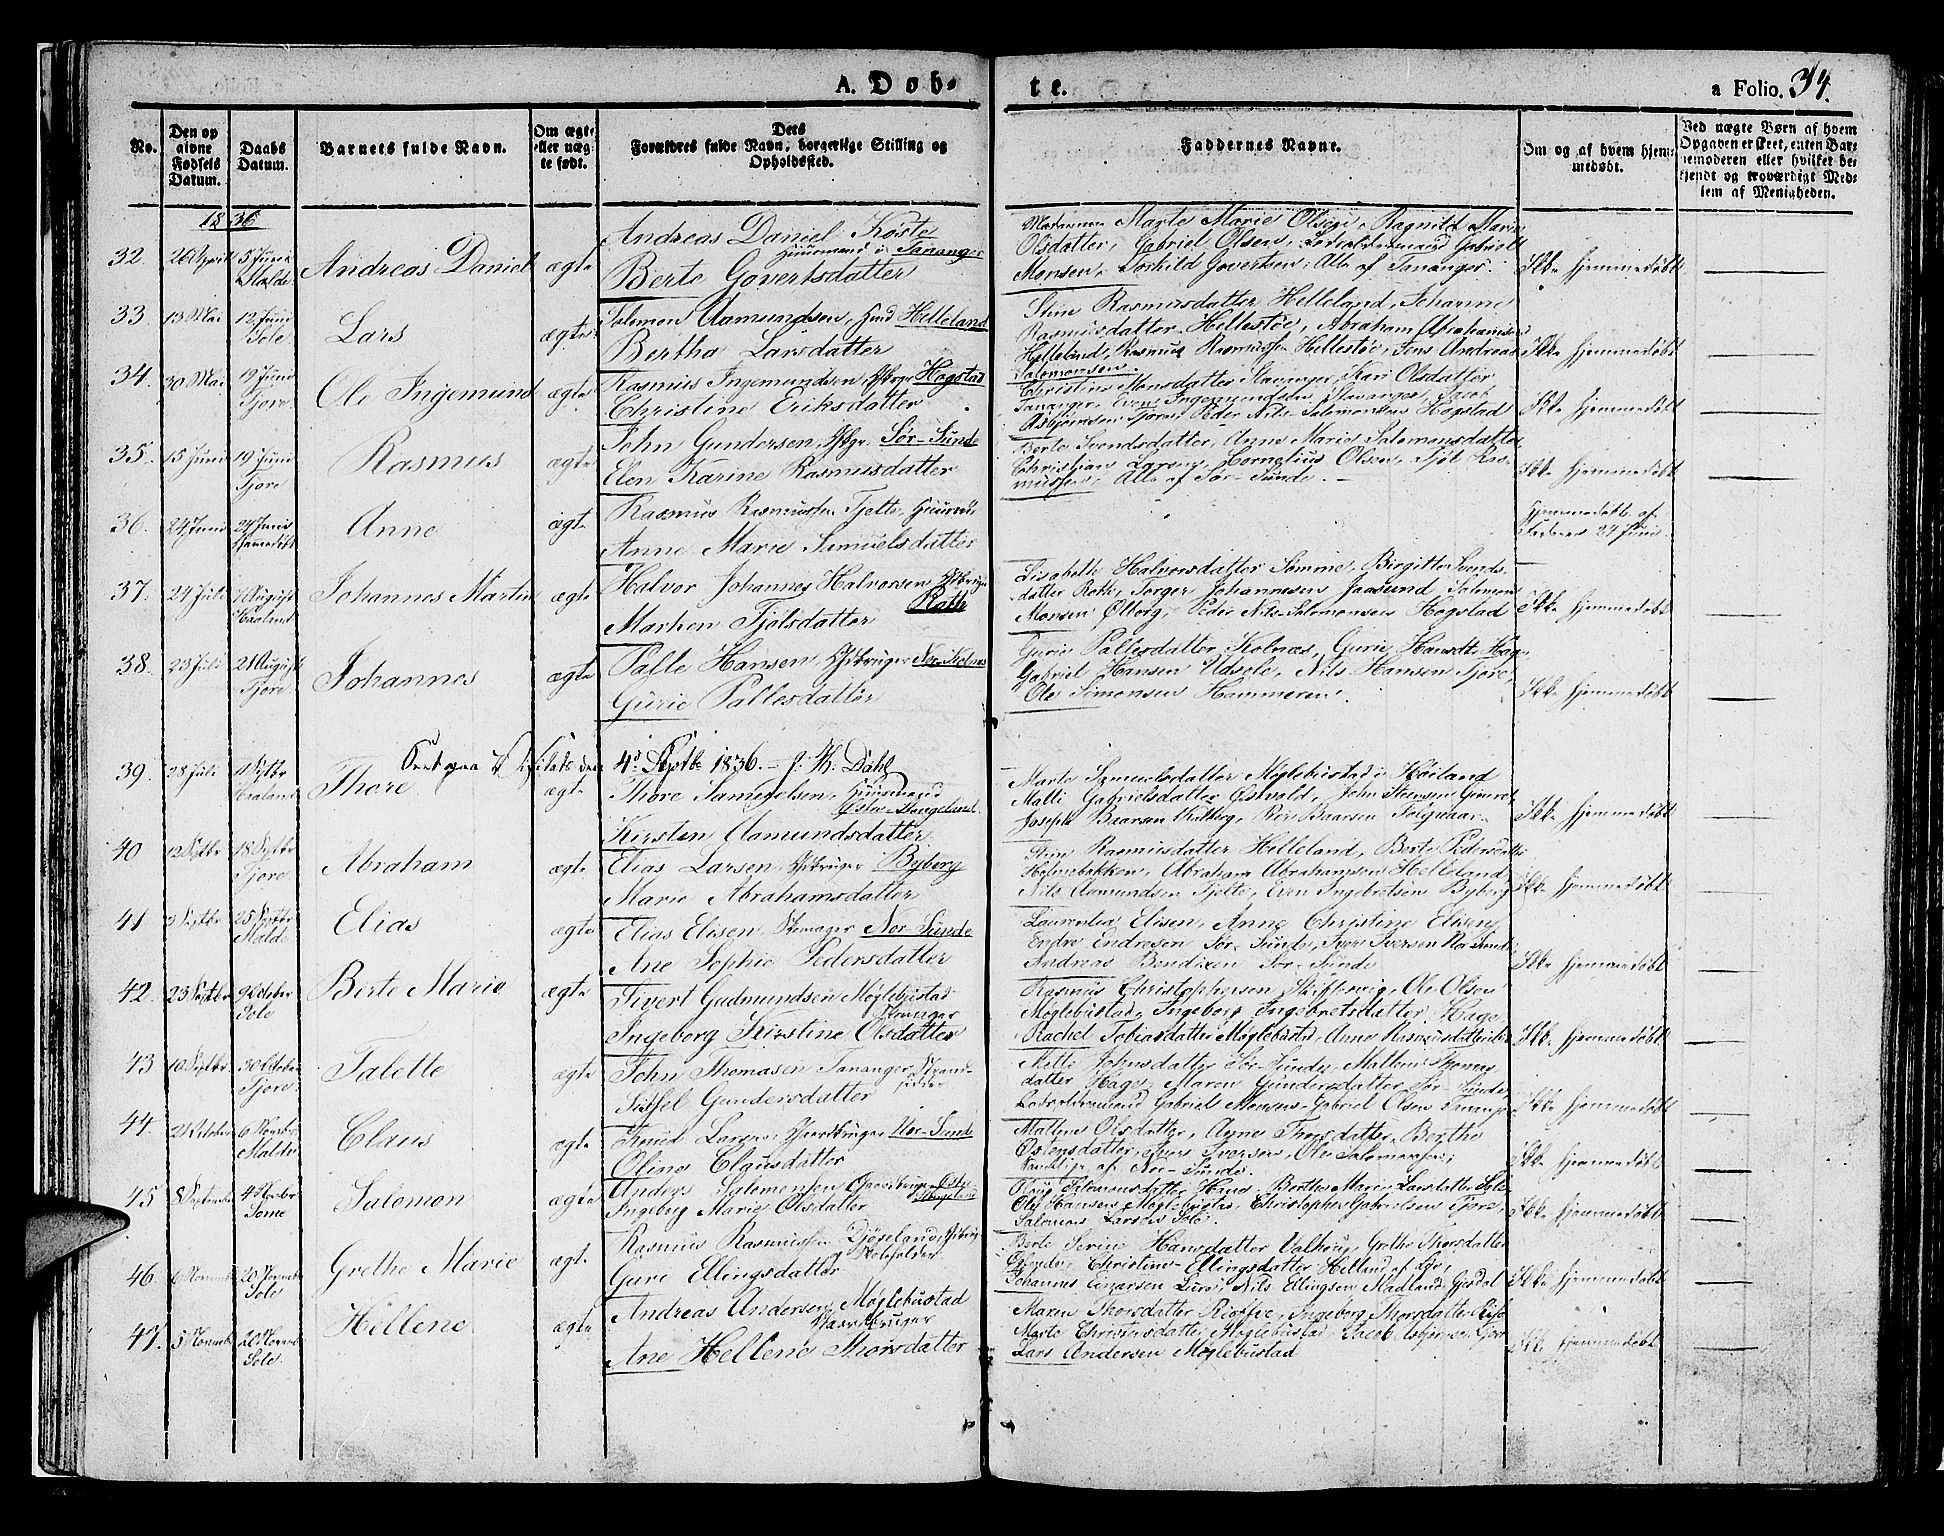 A. Døb-
te.
a Folio. 34.
No.
Den op
givne
Fødsels
Datum.
Daabs
Datum.
Barnets fulde Navn.
Om ægte
eller uæg
te født.
Dets
Forældres fulde Navn, borgerlige Stilling og
Opholdssted.
Faddernes Navne.
Om og af hvem hjem-
medøbt.
Ved uægte Børn af hvem
Opgaven er skeet, enten Bar-
nemoderen eller hvilket be-
kjendt og troværdigt Med-
lem af Menigheden.
1836
32. 26 April 5 Juni Malde Andreas Daniel ægte
Andreas Daniel Køste
Huusmand i Tananger
Berte Govertsdatter
Marte Marie Olsen, Ragnild Marie
Olsdatter, Gabriel Olsen, Gabriel
Monsen, Torkild Govertsen, Alle af Tananger.
Ikke hjemmedøbt
33. 13 Mai 12 Juni Sole Lars ægte
Salomon Aamundsen, Helleland
Bertha Larsdatter
Stine Rasmusdatter Helleland, Johanne
Rasmusdatter Hellestøe, Abraham Abrahamsen
Helleland, Rasmus Rasmussen Hellestøe, Jens Andreas
Salomonsen.
Ikke hjemmedøbt
34. 30 Mai 19 Juni Tjore Ole Ingemund ægte
Rasmus Ingemundsen Hogstad
Christine Eriksdatter
Christine Monsdatter Stavanger, Kari Olsdatter
Tananger, Even Ingemundsen Stavanger, Jacob
Asbjørnsen Tjore, Peder Nils Salomonsen Hogstad
Ikke hjemmedøbt
35. 15 Juni 19 Juni Tjore Rasmus ægte
John Gundersen, Sør-Sunde
Elen Karine Rasmusdatter
Berte Svendsdatter, Anne Marie Salomonsdatter
Christian Larsen, Cornelius Olsen, Tjøl Ras-
mussen, Alle af Sør-Sunde.
Ikke hjemmedøbt
36. 24 Juni 24 Juni Hjemmedøbt Anne ægte
Rasmus Rasmussen Tjelte, Huusmd
Anne Marie Samuelsdatter
Hjemmedøbt af
Faderen 24 Juni
37. 24 Juli 7 August Haaland Johannes Martin ægte
Halvor Johannes Halvorsen
Roth
Marken Tjølsdatter
Lisabeth Halvorsdatter Sømme, Birgitte Svends-
datter Roth, Torger Johannesen Jaasund, Solomon
Monsen Ølborg, Peder Nils Salomonsen Hogstad
Ikke hjemmedøbt
38. 23 Juli 21 August Tjore Johannes ægte
Palle Hansen Gbruger Nor-Kolnes
Gurie Pallesdatter
Gurie Pallesdatter Kolnæs, Gurie Hansdtr Hage
Gabriel Hansen Udsole, Nils Hansen Tjore,
Ole Simonsen Hammeren.
Ikke hjemmedøbt
Seet paa Visitats den 4d Septbr 1836. J. K. Dahl
39. 28 Juli 11 Septbr Haaland Thore ægte
Thore Samuelsen, Huusmand
Østre-Hangeland
Kirsten Aamundsdatter
Marte Samuelsdatter Møglebustad i Høiland
Malli Gabrielsdatter Østvold, John Steensen Gimre
Joseph Baarsen Kolberg, Peer Baarsen
Ikke hjemmedøbt
40 12 Septbr 18 Septbr Tjore Abraham ægte
Elias Larsen, Gbruger Byberg
Marie Abrahamsdatter
Stine Rasmusdatter Helleland, Berte Pedersdatter
Holmebakken, Abraham Abrahamsen Helleland
Nils Aamundsen Tjelte, Even Ingebretsen Byberg
Ikke hjemmedøbt
41 3 Septbr 25 Septbr Malde Elias ægte
Elias Elisen, Skomager Nor-Sunde
Ane Sophie Pedersdatter
Laurentia Elisen, Anne Christine Elisen,
Endre Endresen Sør-Sunde, Iver Iversen Nor-Sunde
Andreas Bendixen Sør-Sunde
Ikke hjemmedøbt
42. 23 Septbr 9 October Sole Berte Marie ægte
Sivert Gudmundsen Møglebustad
Skomager
Ingeborg Kirstine Olsdatter
Rasmus Christophersen, Ole Olsen
Møglebustad, Ingeborg Ingebretsdatter Hage
Rachel Tobiasdatter Møglebustad, Anne Rasmusdatter
Ikke hjemmedøbt
43 10 Septbr 30 October Tjore Talette ægte
John Thomasen Tananger, Strand-
sidder
Sissel Gundersdatter
Mette Johnsdatter Sør-Sunde, Mallene Thomas-
datter Hage, Maren Gundersdatter Sør-Sunde,
Gabriel Monsen, Gabriel Olsen Tananger
Ikke hjemmedøbt
44 21 October 6 Novbr Malde Claus ægte
Knud Larsen, Gaardbruger Nor-Sunde
Oline Clausdatter
Mallene Olsdatter, Anne Thorsdatter, Berthe
Østensdatter, Iver Iversen, Ole Salomonsen,
samtlige af Nor-Sunde.
Ikke hjemmedøbt
45 8 September 4 Novbr Sømme Salomon ægte
Anders Salomonsen Gaardbruger Østre
Hangeland
Ingeborg Marie Olsdatter
Salomonsdatter, Berthe Marie Larsdatter Sole
Ole Hansen Møglebustad, Christopher Gabrielsen Tjore,
Salomon Larsen Sole.
Ikke hjemmedøbt
46 6 Novemb 20 Novemb Sole Grethe Marie ægte
Rasmus Rasmussen Djøseland,
Guri Ellingsdatter
Berte Serine Hansdatter Valhøy, Grethe Thorsdatter
Christine Ellingsdatter Helland af Lye,
Johannes Einarsen Lura, Nils Ellingsen Madland, Gjesdal
Ikke hjemmedøbt
47. 5 Novemb 20 Novemb Sole Hellene ægte
Andreas Andersen Møglebustad
Gaardbruger
Ane Hellene Thorsdatter
Maren Thorsdatter, Ingeborg Thorsdatter
Marte Christensdatter Møglebustad, Jacob Asbjørnsen Tjore
Lars Andersen Møglebustad
Ikke hjemmedøbt